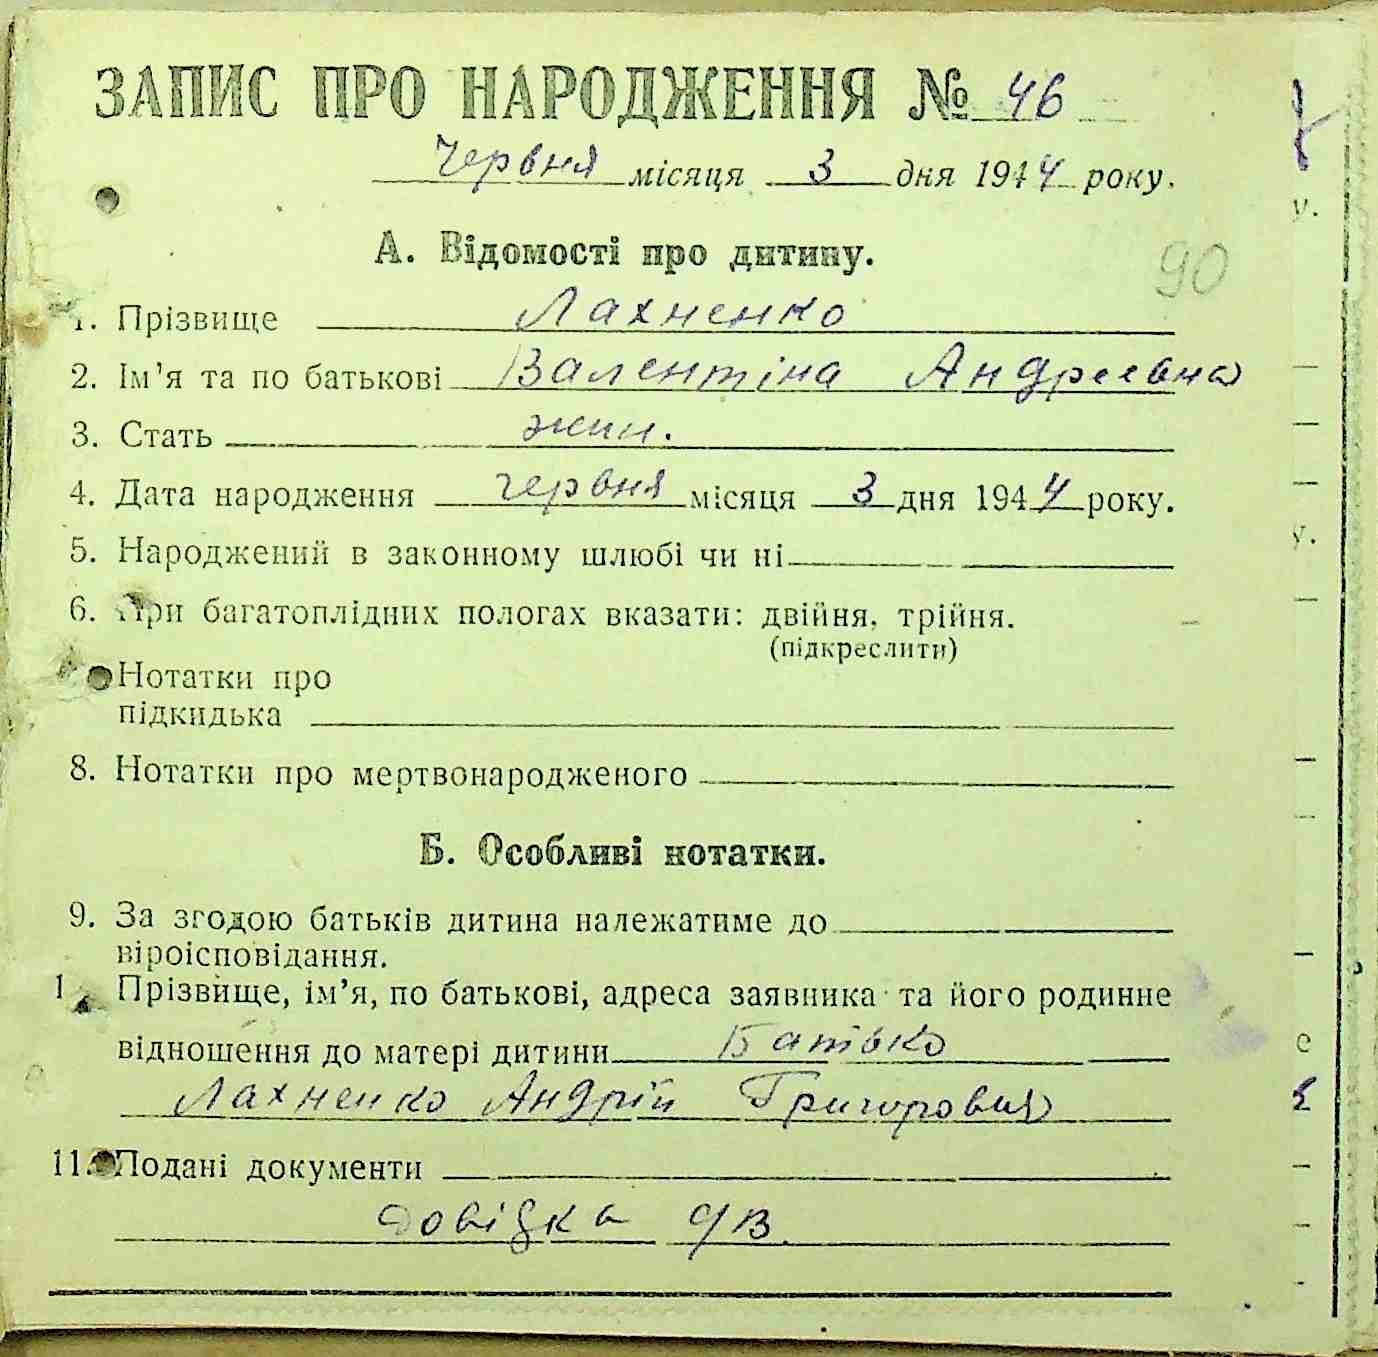 ЗАПИС ПРО НАРОДЖЕННЯ № 46
Червня місяця 3 дня 1944 року.
А. Відомості про дитину.
90
1. Прізвище Лахненко
2. Ім'я та по батькові Валентіна Андреевна
3. Стать жин.
4. Дата народження червня місяця 3 дня 1944 року.
5. Народжений в законному шлюбі чи ні
6. При багатоплідних пологах вказати: двійня, трійня.
(підкреслити)
Нотатки про
підкидька
8. Нотатки про мертвонародженого
Б. Особливі нотатки.
9. За згодою батьків дитина належатиме до
віроісповідання.
1 Прізвище, ім'я, по батькові, адреса заявника та його родинне
відношення до матері дитини Батько
Лахненко Андрій Григорович
11. Подані документи
Довідка